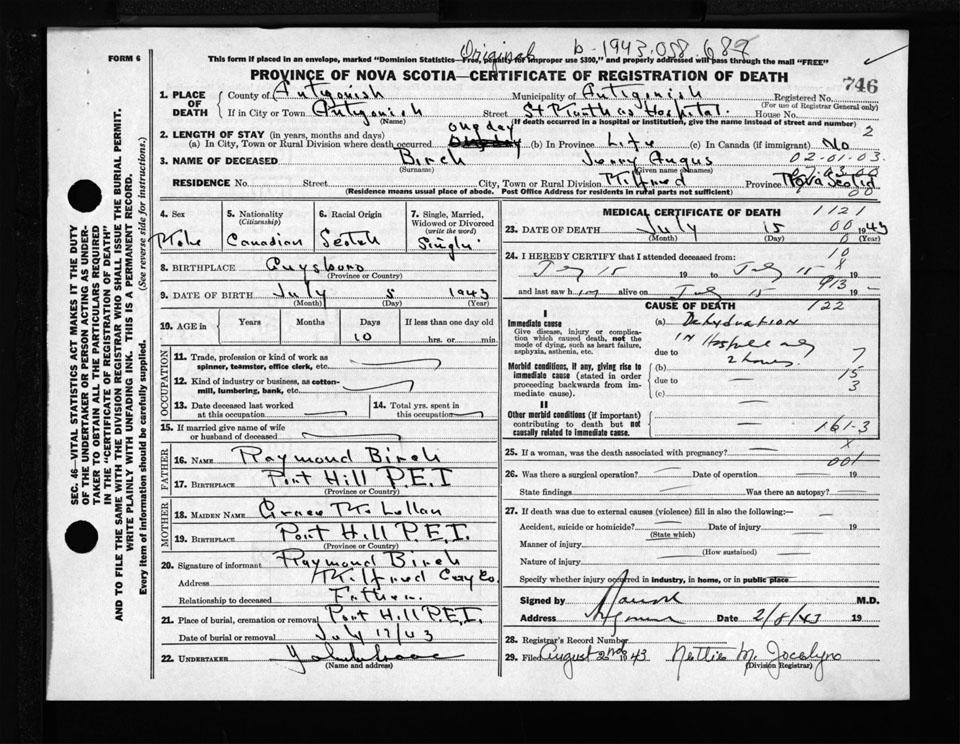 Original b-1943.058.687
FORM 6
This form if placed in an envelope, marked "Dominion Statistics—Free, penalty for improper use $300," and properly addressed will pass through the mail "FREE"
PROVINCE OF NOVA SCOTIA—CERTIFICATE OF REGISTRATION OF DEATH
746
1. PLACE OF DEATH
County of Antigonish Municipality of Antigonish Registered No.
(For use of Registrar General only)
If in City or Town Antigonish Street St Martha's Hospital House No.
(Name) (If death occurred in a hospital or institution, give the name instead of street and number) 2
2. LENGTH OF STAY (in years, months and days) one day
(a) In City, Town or Rural Division where death occurred (b) In Province Life (c) In Canada (if immigrant) No
02-01-03.
3. NAME OF DECEASED Birch Jerry Angus
(Surname) (Given name or names)
RESIDENCE No. Street City, Town or Rural Division Milford Province Nova Scotia
(Residence means usual place of abode. Post Office Address for residents in rural parts not sufficient) 00
4. Sex Male
5. Nationality (Citizenship) Canadian
6. Racial Origin Scotch
7. Single, Married, Widowed or Divorced (write the word) Single
8. BIRTHPLACE Guysboro
(Province or Country)
9. DATE OF BIRTH July 5 1943
(Month) (Day) (Year)
10. AGE in Years Months Days If less than one day old
10 hrs. or min.
OCCUPATION
11. Trade, profession or kind of work as spinner, teamster, office clerk, etc.
12. Kind of industry or business, as cotton-mill, lumbering, bank, etc.
13. Date deceased last worked at this occupation
14. Total yrs. spent in this occupation
15. If married give name of wife or husband of deceased
FATHER
16. NAME Raymond Birch
17. BIRTHPLACE Port Hill P.E.I
(Province or Country)
MOTHER
18. MAIDEN NAME Grace McLellan
19. BIRTHPLACE Port Hill P.E.I.
(Province or Country)
20. Signature of informant Raymond Birch
Address Milford Guy Co.
Relationship to deceased Father.
21. Place of burial, cremation or removal Port Hill P.E.I.
Date of burial or removal July 17/43
22. UNDERTAKER
(Name and address)
MEDICAL CERTIFICATE OF DEATH 1121
23. DATE OF DEATH July 15 00 1943
(Month) (Day) 0 (Year)
24. I HEREBY CERTIFY that I attended deceased from: 10
July 15 19 to July 15 19
913
and last saw him alive on July 15 19
CAUSE OF DEATH 122
I
Immediate cause
Give disease, injury or complication which caused death, not the mode of dying, such as heart failure, asphyxia, asthenia, etc.
(a) Dehydration
in Hospital only
due to 2 hours 7
Morbid conditions, if any, giving rise to immediate cause (stated in order proceeding backwards from immediate cause).
(b) 15
due to 3
(c)
II
Other morbid conditions (if important) contributing to death but not causally related to immediate cause.
161-3
25. If a woman, was the death associated with pregnancy? X
001
26. Was there a surgical operation? Date of operation 19
State findings Was there an autopsy?
27. If death was due to external causes (violence) fill in also the following:—
Accident, suicide or homicide? Date of injury 19
(State which)
Manner of injury
(How sustained)
Nature of injury
Specify whether injury occurred in industry, in home, or in public place
Signed by M.D.
Address Date 2/8/43 19
28. Registrar's Record Number
29. Filed August 2nd 1943 Nettie M. Jocelyn
(Division Registrar)
SEC. 46—VITAL STATISTICS ACT MAKES IT THE DUTY
OF THE UNDERTAKER OR PERSON ACTING AS UNDER-
TAKER TO OBTAIN ALL THE PARTICULARS REQUIRED
IN THE "CERTIFICATE OF REGISTRATION OF DEATH"
AND TO FILE THE SAME WITH THE DIVISION REGISTRAR WHO SHALL ISSUE THE BURIAL PERMIT.
WRITE PLAINLY WITH UNFADING INK. THIS IS A PERMANENT RECORD.
Every item of information should be carefully supplied. (See reverse side for instructions.)